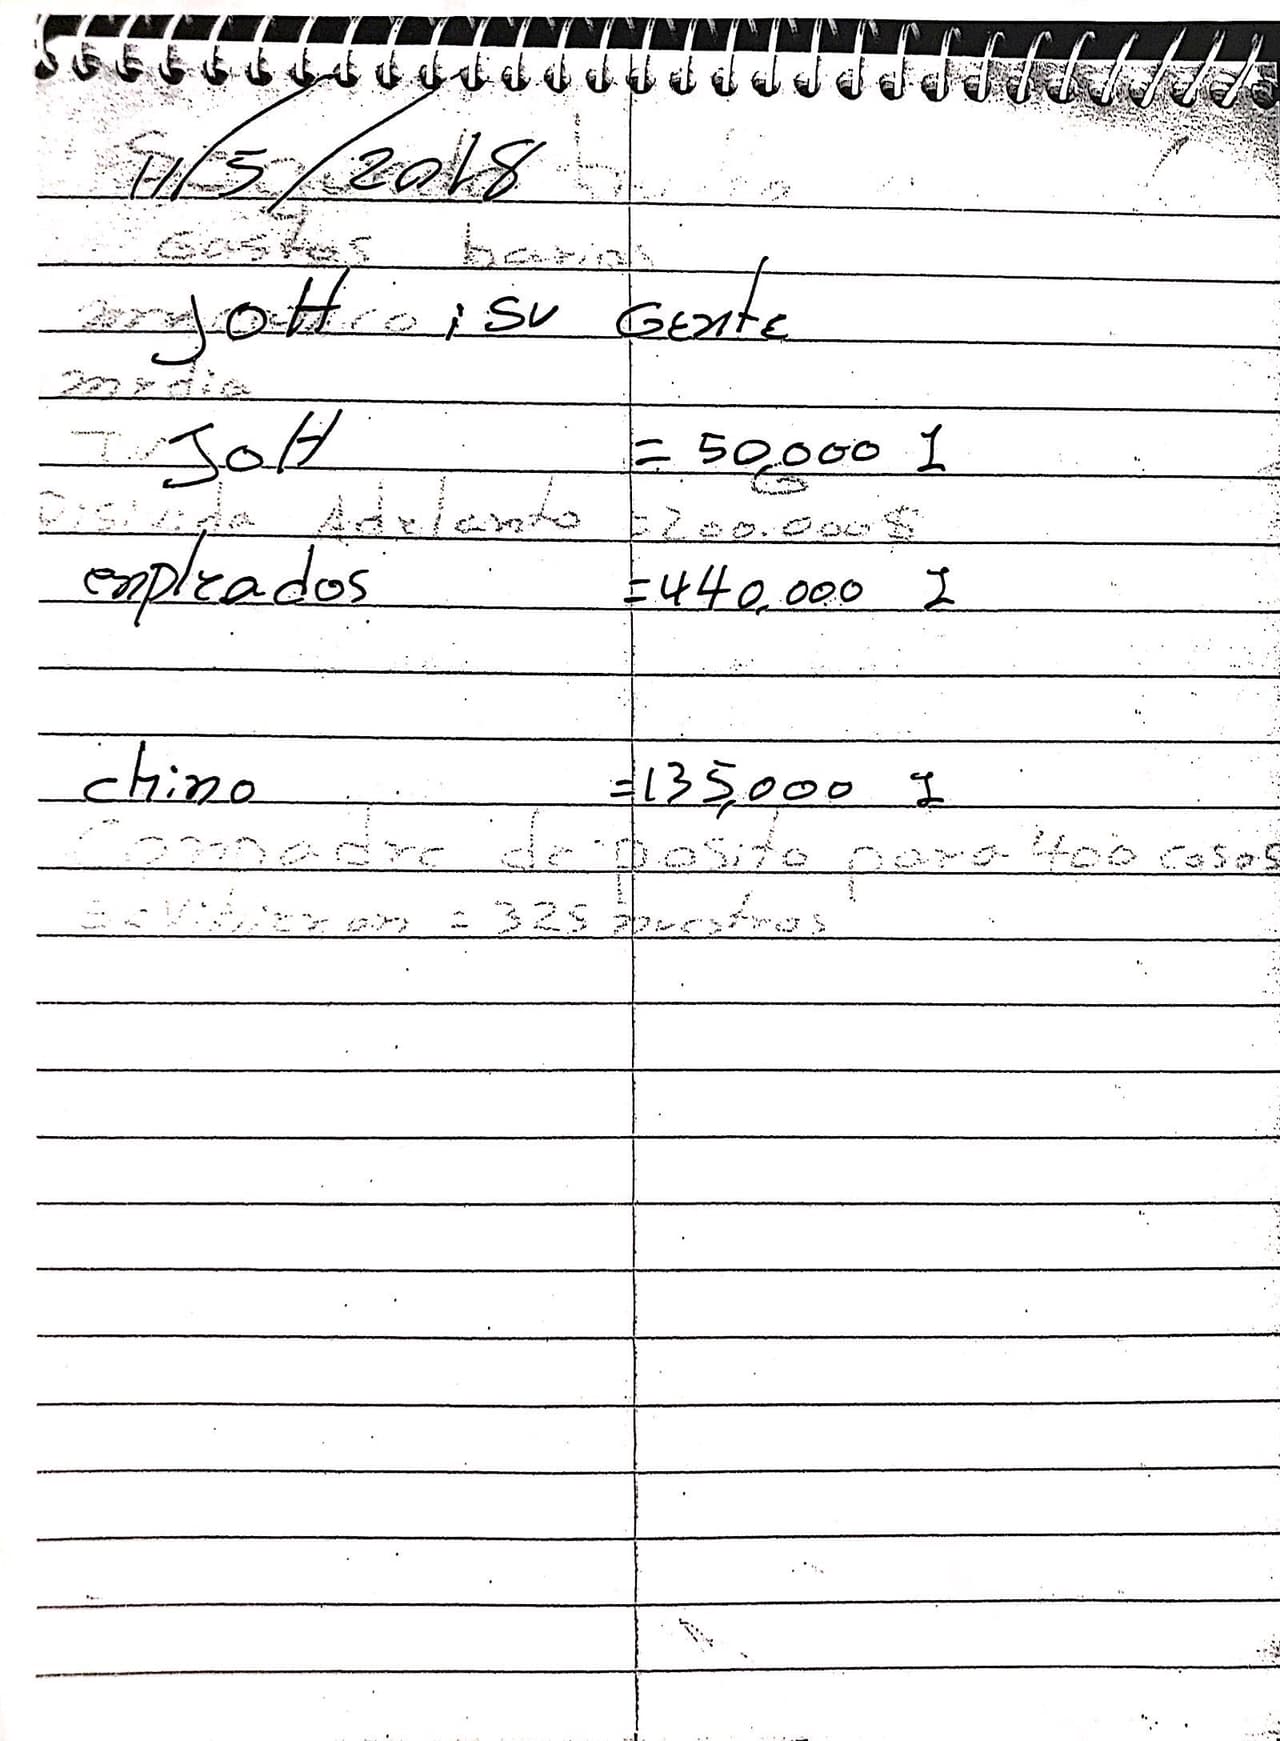 11/5/2018
Gastos barios
JOH i SU GENTE
media
JOH = 50,000 L
Adelanto = 200.000 $
enpleados = 440,000 L
chino = 135,000 L
Comadre deposito para 400 cosos
= 325 nuestros